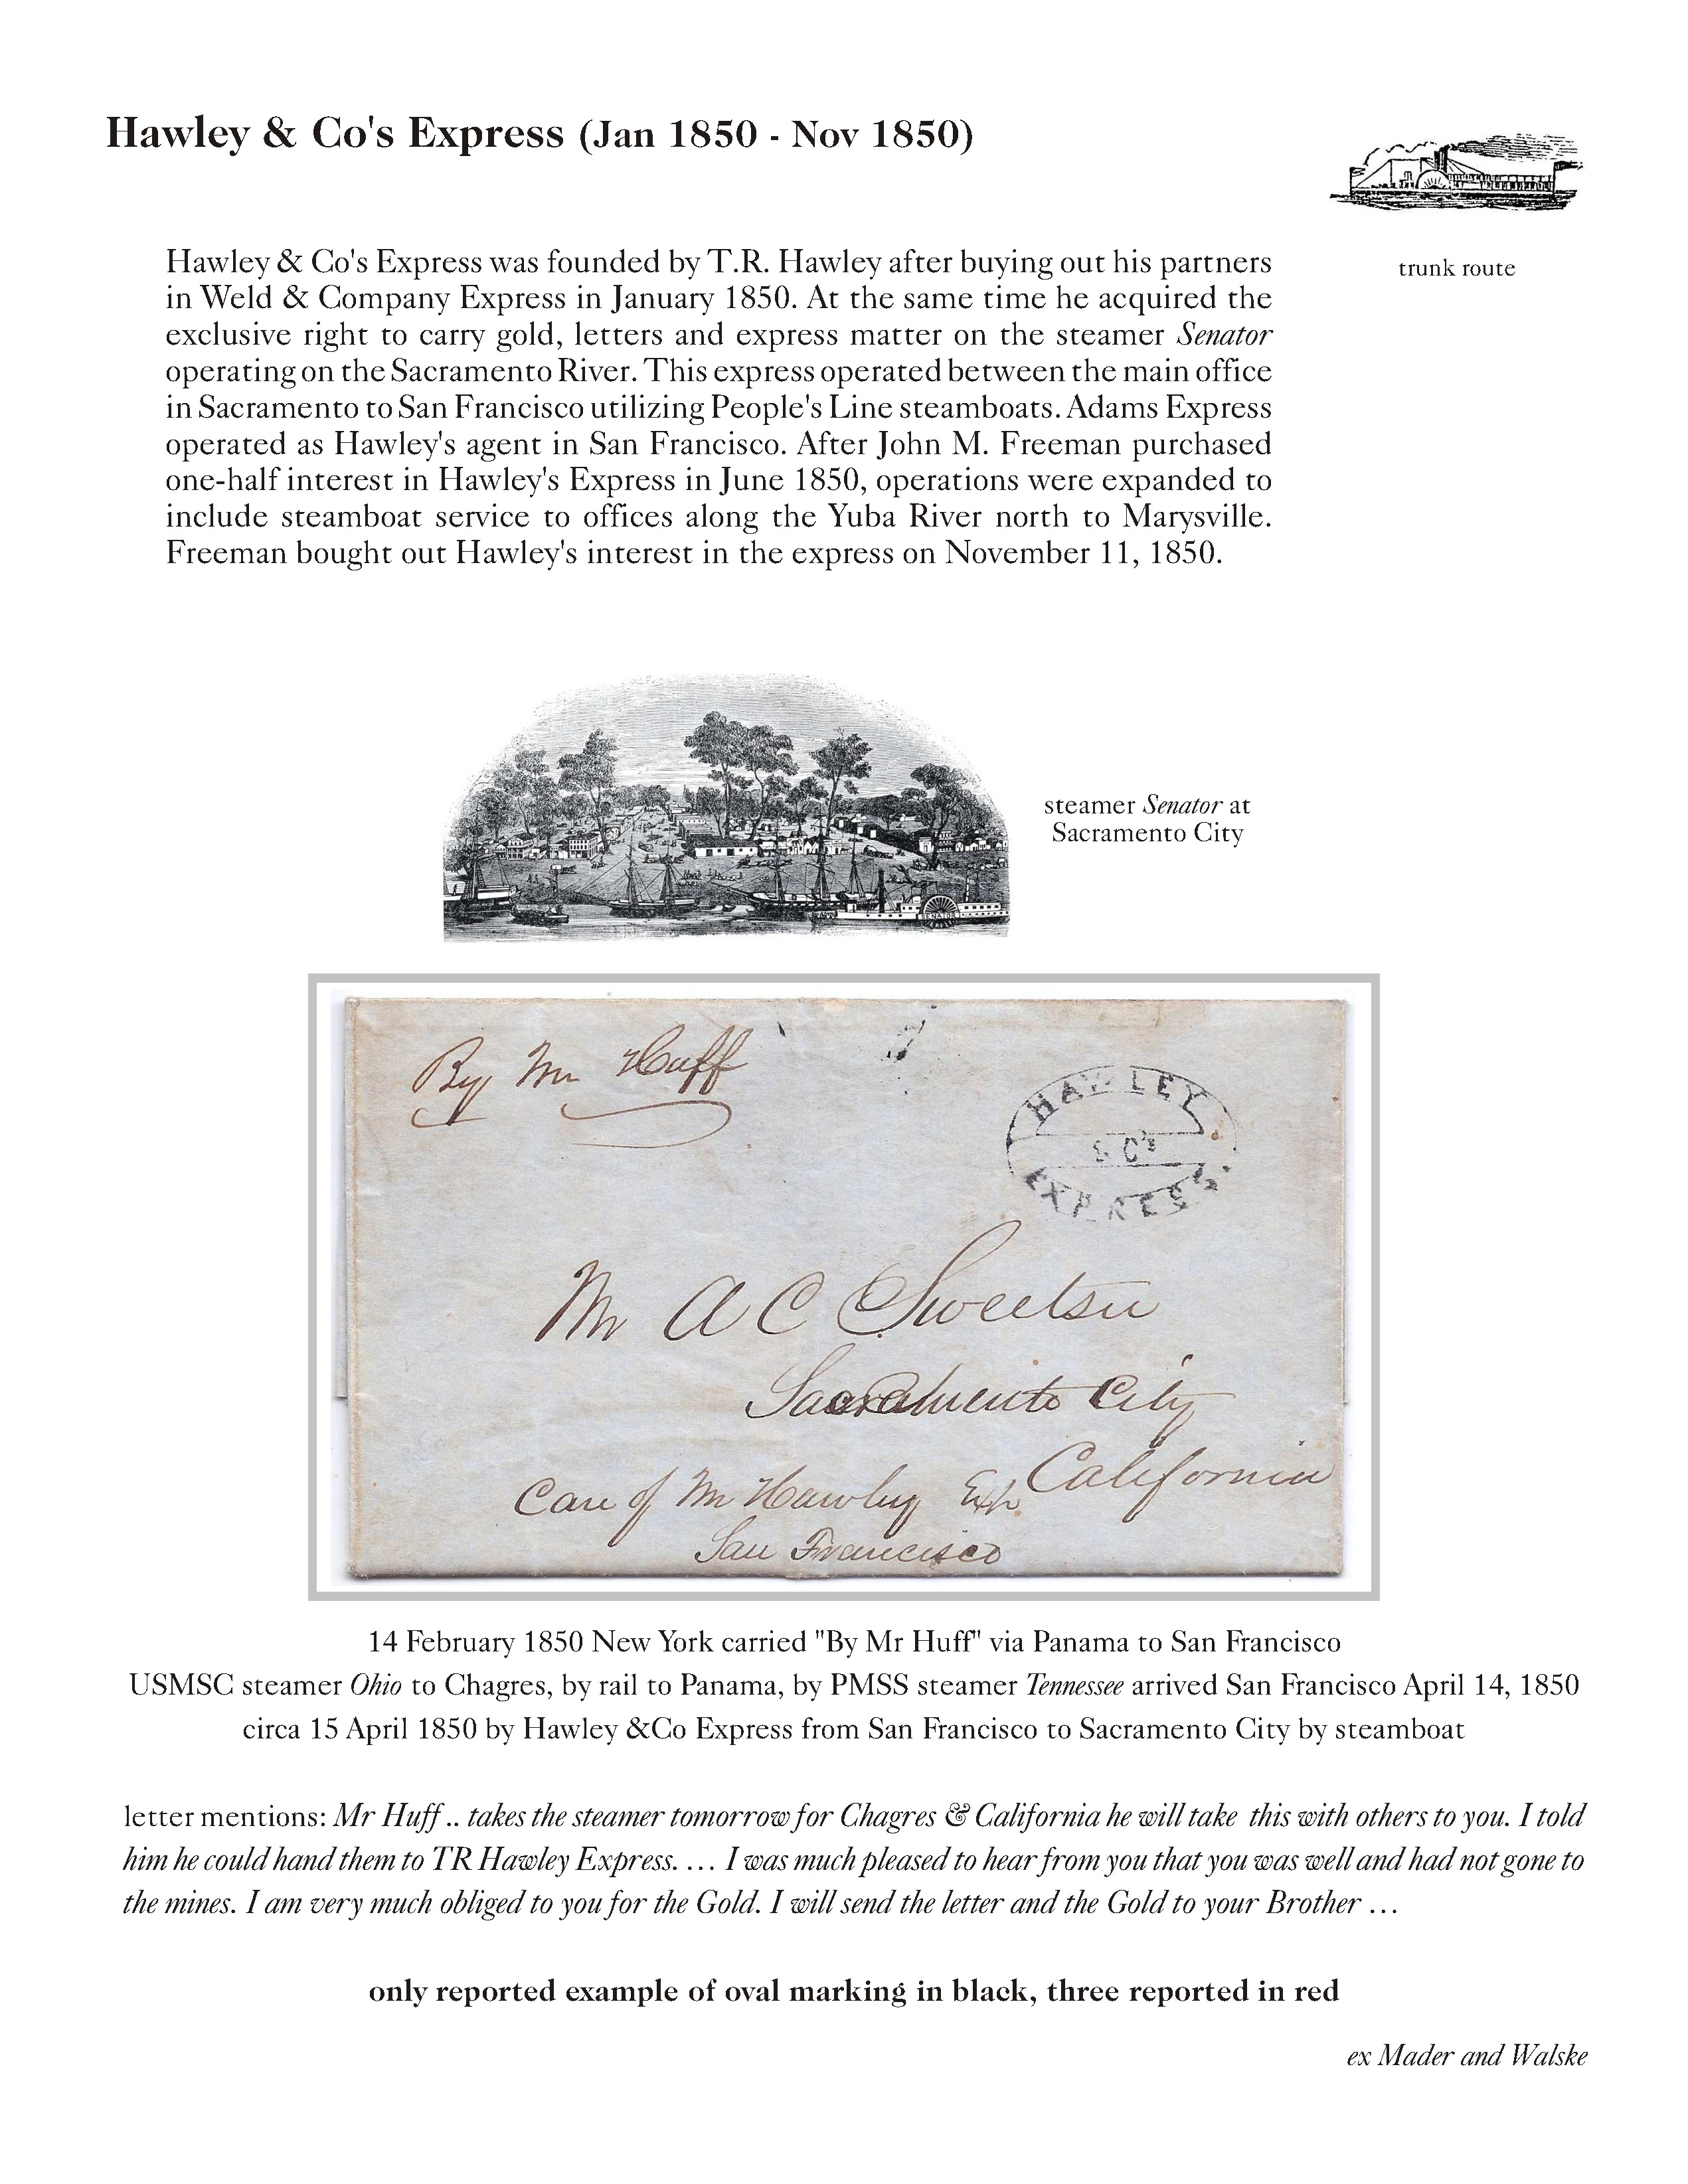 Hawley & Co's Express (Jan 1850 - Nov 1850)
trunk route
Hawley & Co's Express was founded by T.R. Hawley after buying out his partners
in Weld & Company Express in January 1850. At the same time he acquired the
exclusive right to carry gold, letters and express matter on the steamer Senator
operating on the Sacramento River. This express operated between the main office
in Sacramento to San Francisco utilizing People's Line steamboats. Adams Express
operated as Hawley's agent in San Francisco. After John M. Freeman purchased
one-half interest in Hawley's Express in June 1850, operations were expanded to
include steamboat service to offices along the Yuba River north to Marysville.
Freeman bought out Hawley's interest in the express on November 11, 1850.
steamer Senator at
Sacramento City
SENATOR
By Mr Huff
HAWLEY
& Co's
EXPRESS
Mr A C Sweetser
Sacramento City
California
Care of Mr Hawley Exp.
San Francisco
14 February 1850 New York carried "By Mr Huff" via Panama to San Francisco
USMSC steamer Ohio to Chagres, by rail to Panama, by PMSS steamer Tennessee arrived San Francisco April 14, 1850
circa 15 April 1850 by Hawley &Co Express from San Francisco to Sacramento City by steamboat
letter mentions: Mr Huff .. takes the steamer tomorrow for Chagres & California he will take this with others to you. I told
him he could hand them to TR Hawley Express. … I was much pleased to hear from you that you was well and had not gone to
the mines. I am very much obliged to you for the Gold. I will send the letter and the Gold to your Brother …
only reported example of oval marking in black, three reported in red
ex Mader and Walske